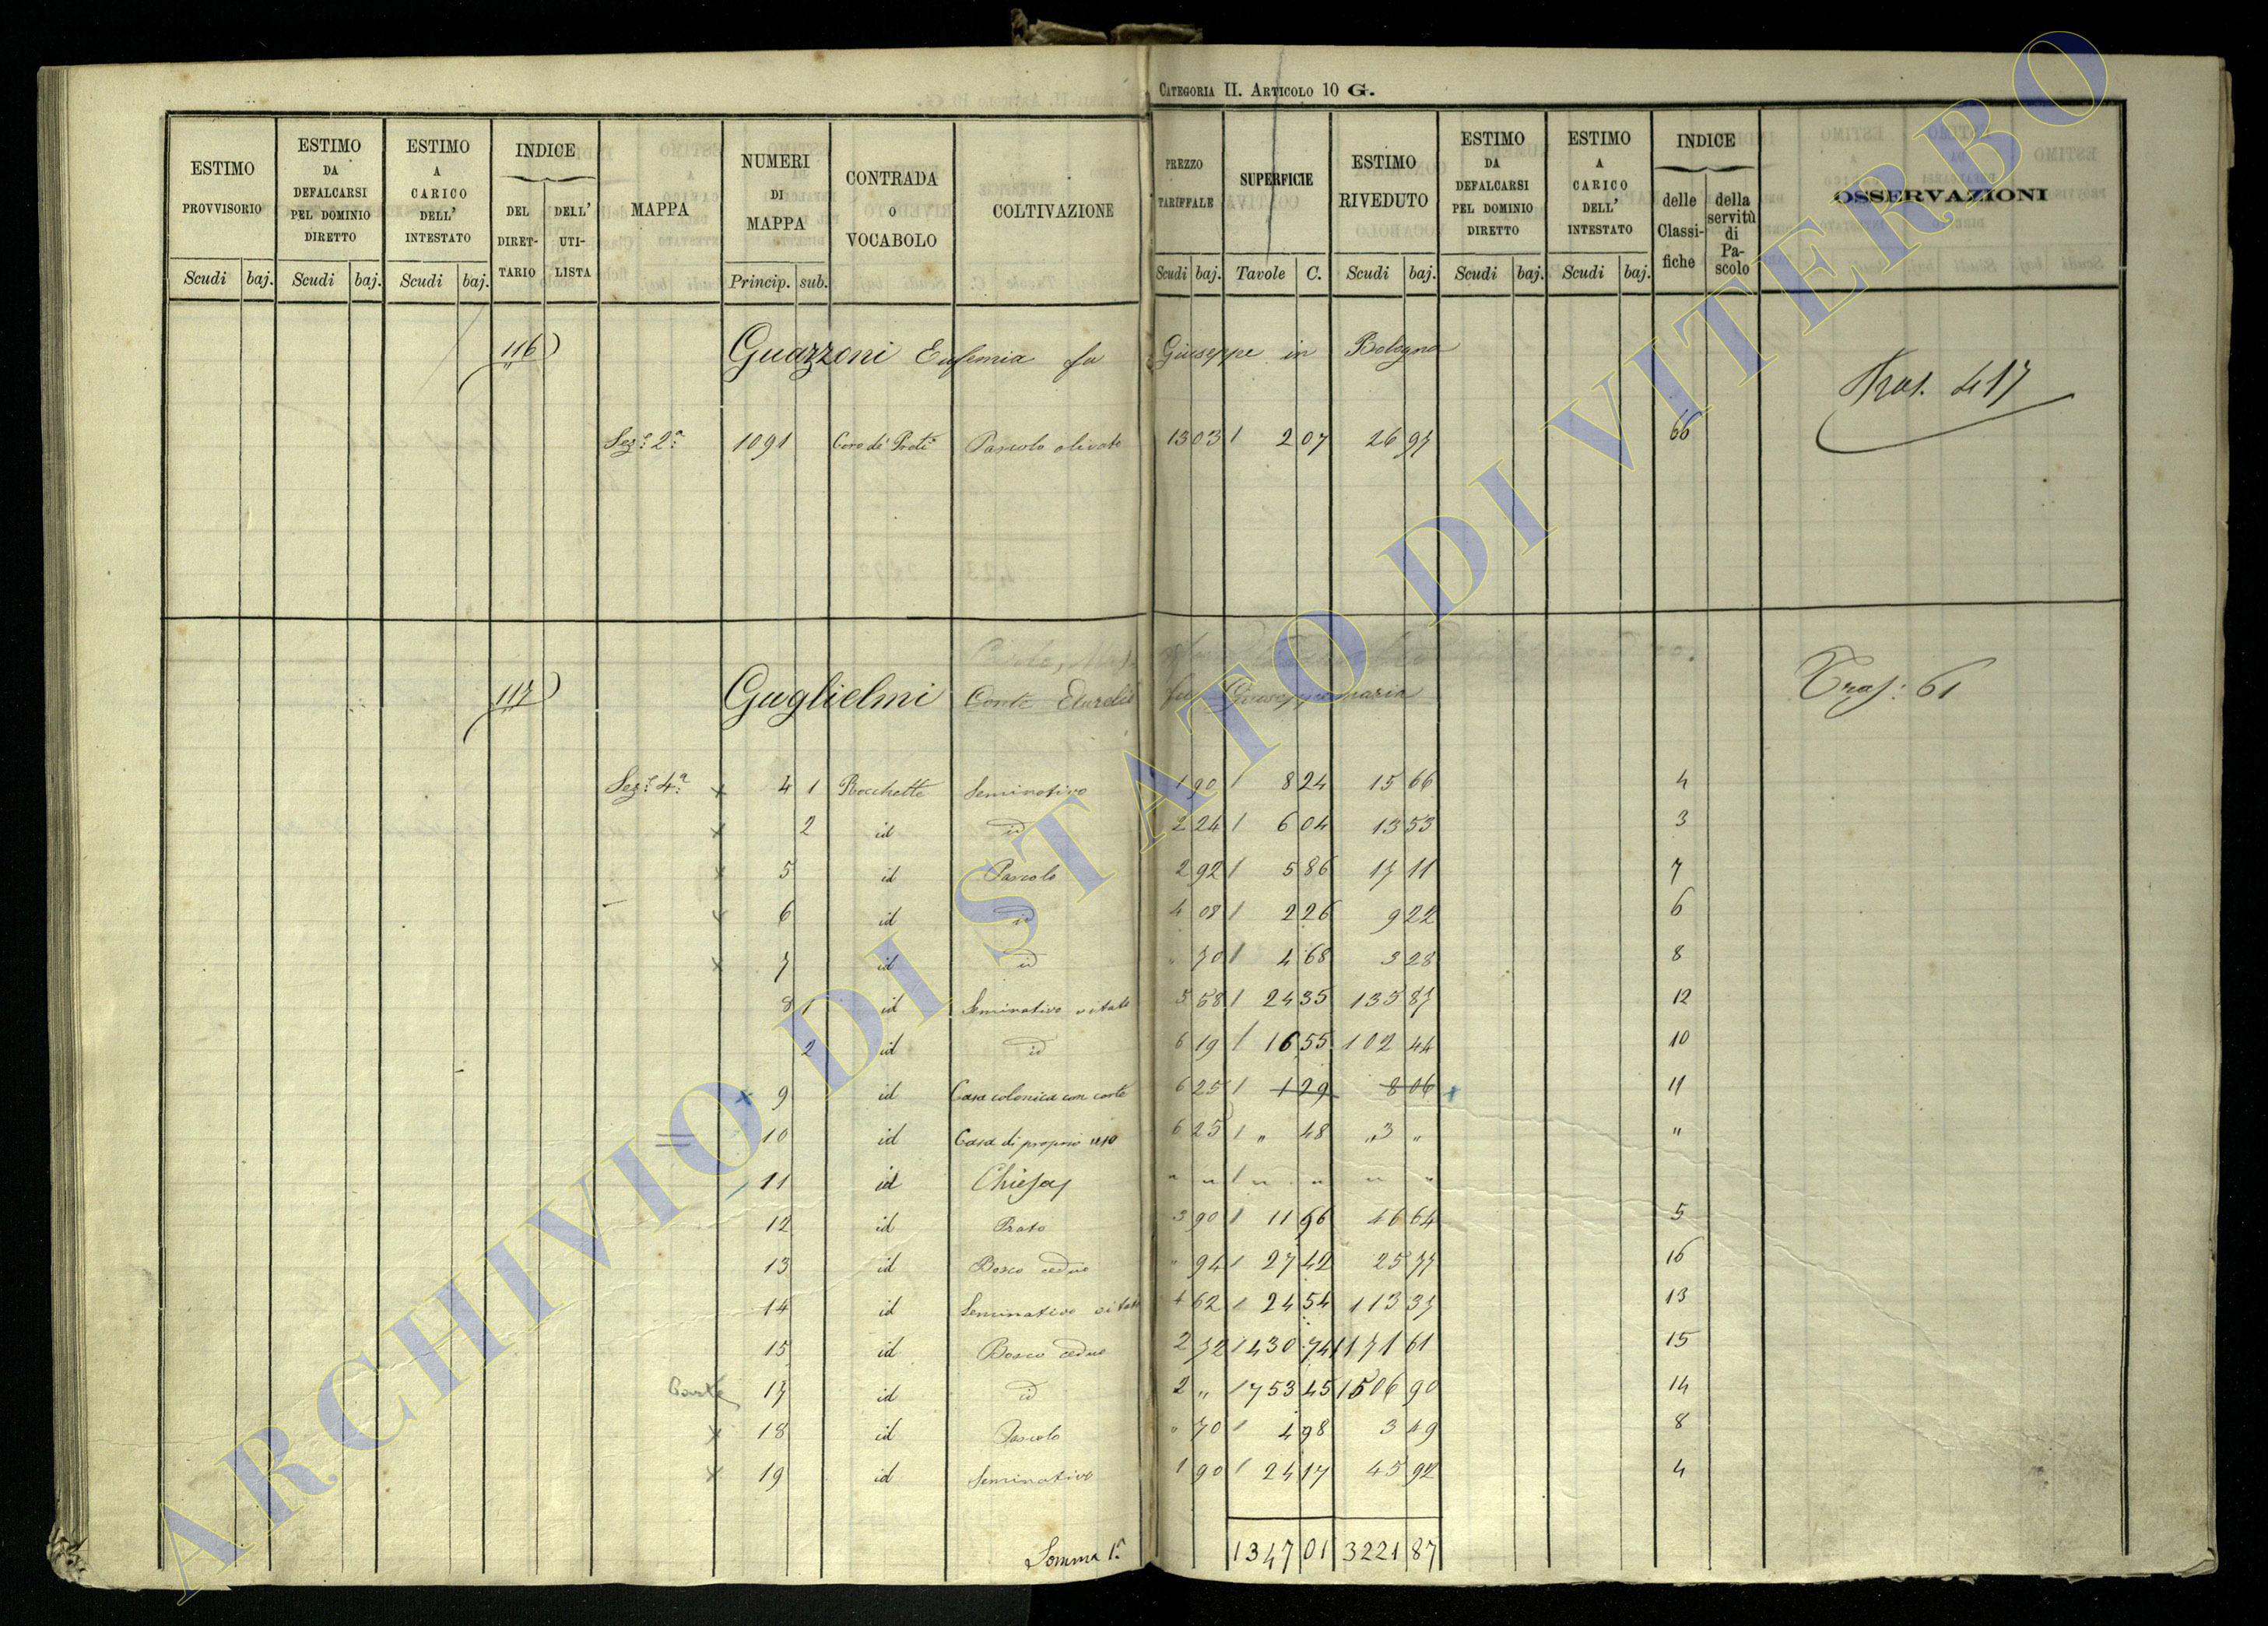 CATEGORIA II. ARTICOLO 10 G.
ESTIMO PROVVISORIO Scudi baj.
ESTIMO DA DEFALCARSI PEL DOMINIO DIRETTO Scudi baj.
ESTIMO A CARICO DELL' INTESTATO Scudi baj.
INDICE DEL DIRET- TARIO DELL' UTI- LISTA
MAPPA
NUMERI DI MAPPA Princip. sub.
CONTRADA O VOCABOLO
COLTIVAZIONE
PREZZO TARIFFALE Scudi baj.
SUPERFICIE Tavole C.
ESTIMO RIVEDUTO Scudi baj.
ESTIMO DA DEFALCARSI PEL DOMINIO DIRETTO Scudi baj.
ESTIMO A CARICO DELL' INTESTATO Scudi baj.
INDICE delle Classi- fiche della servitù di Pa- scolo
OSSERVAZIONI
116) Guazzoni Eufemia fu Giuseppe in Bologna
Tras. 417
Sez.e 2.a 1091 Pascolo olivato 13 03 / 2 07 26 97 60
117) Guglielmi Conte fu Giuseppemaria Tras: 61
Sez.e 4.a x 4 1 Rocchette Seminativo 1 90 / 8 24 15 66 4
x 2 id id 2 24 / 6 04 13 53 3
x 5 id Pascolo 2 92 / 5 86 17 11 7
x 6 id id 4 08 / 2 26 9 22 6
x 7 id id " 70 / 4 68 3 28 8
8 1 id Seminativo vitato 5 58 / 24 35 135 87 12
2 id id 6 19 / 16 55 102 44 10
x 9 id Casa colonica con corte 6 25 / 1 29 8 06 x 11
10 id Casa di proprio uso 6 25 / " 48 " 3 " "
11 id Chiesa " " / " " " "
12 id Prato 3 90 / 11 96 46 64 5
13 id Bosco ceduo " 94 / 27 42 25 77 16
14 id Seminativo vitato 4 62 / 24 54 113 37 13
15 id Bosco ceduo 2 72 / 430 74 1171 61 15
Parte 17 id id 2 " / 753 45 1506 90 14
x 18 id Pascolo " 70 / 4 98 3 49 8
x 19 id Seminativo 1 90 / 24 17 45 92 4
Somma 1.a 1347 01 3221 87
ARCHIVIO DI STATO DI VITERBO